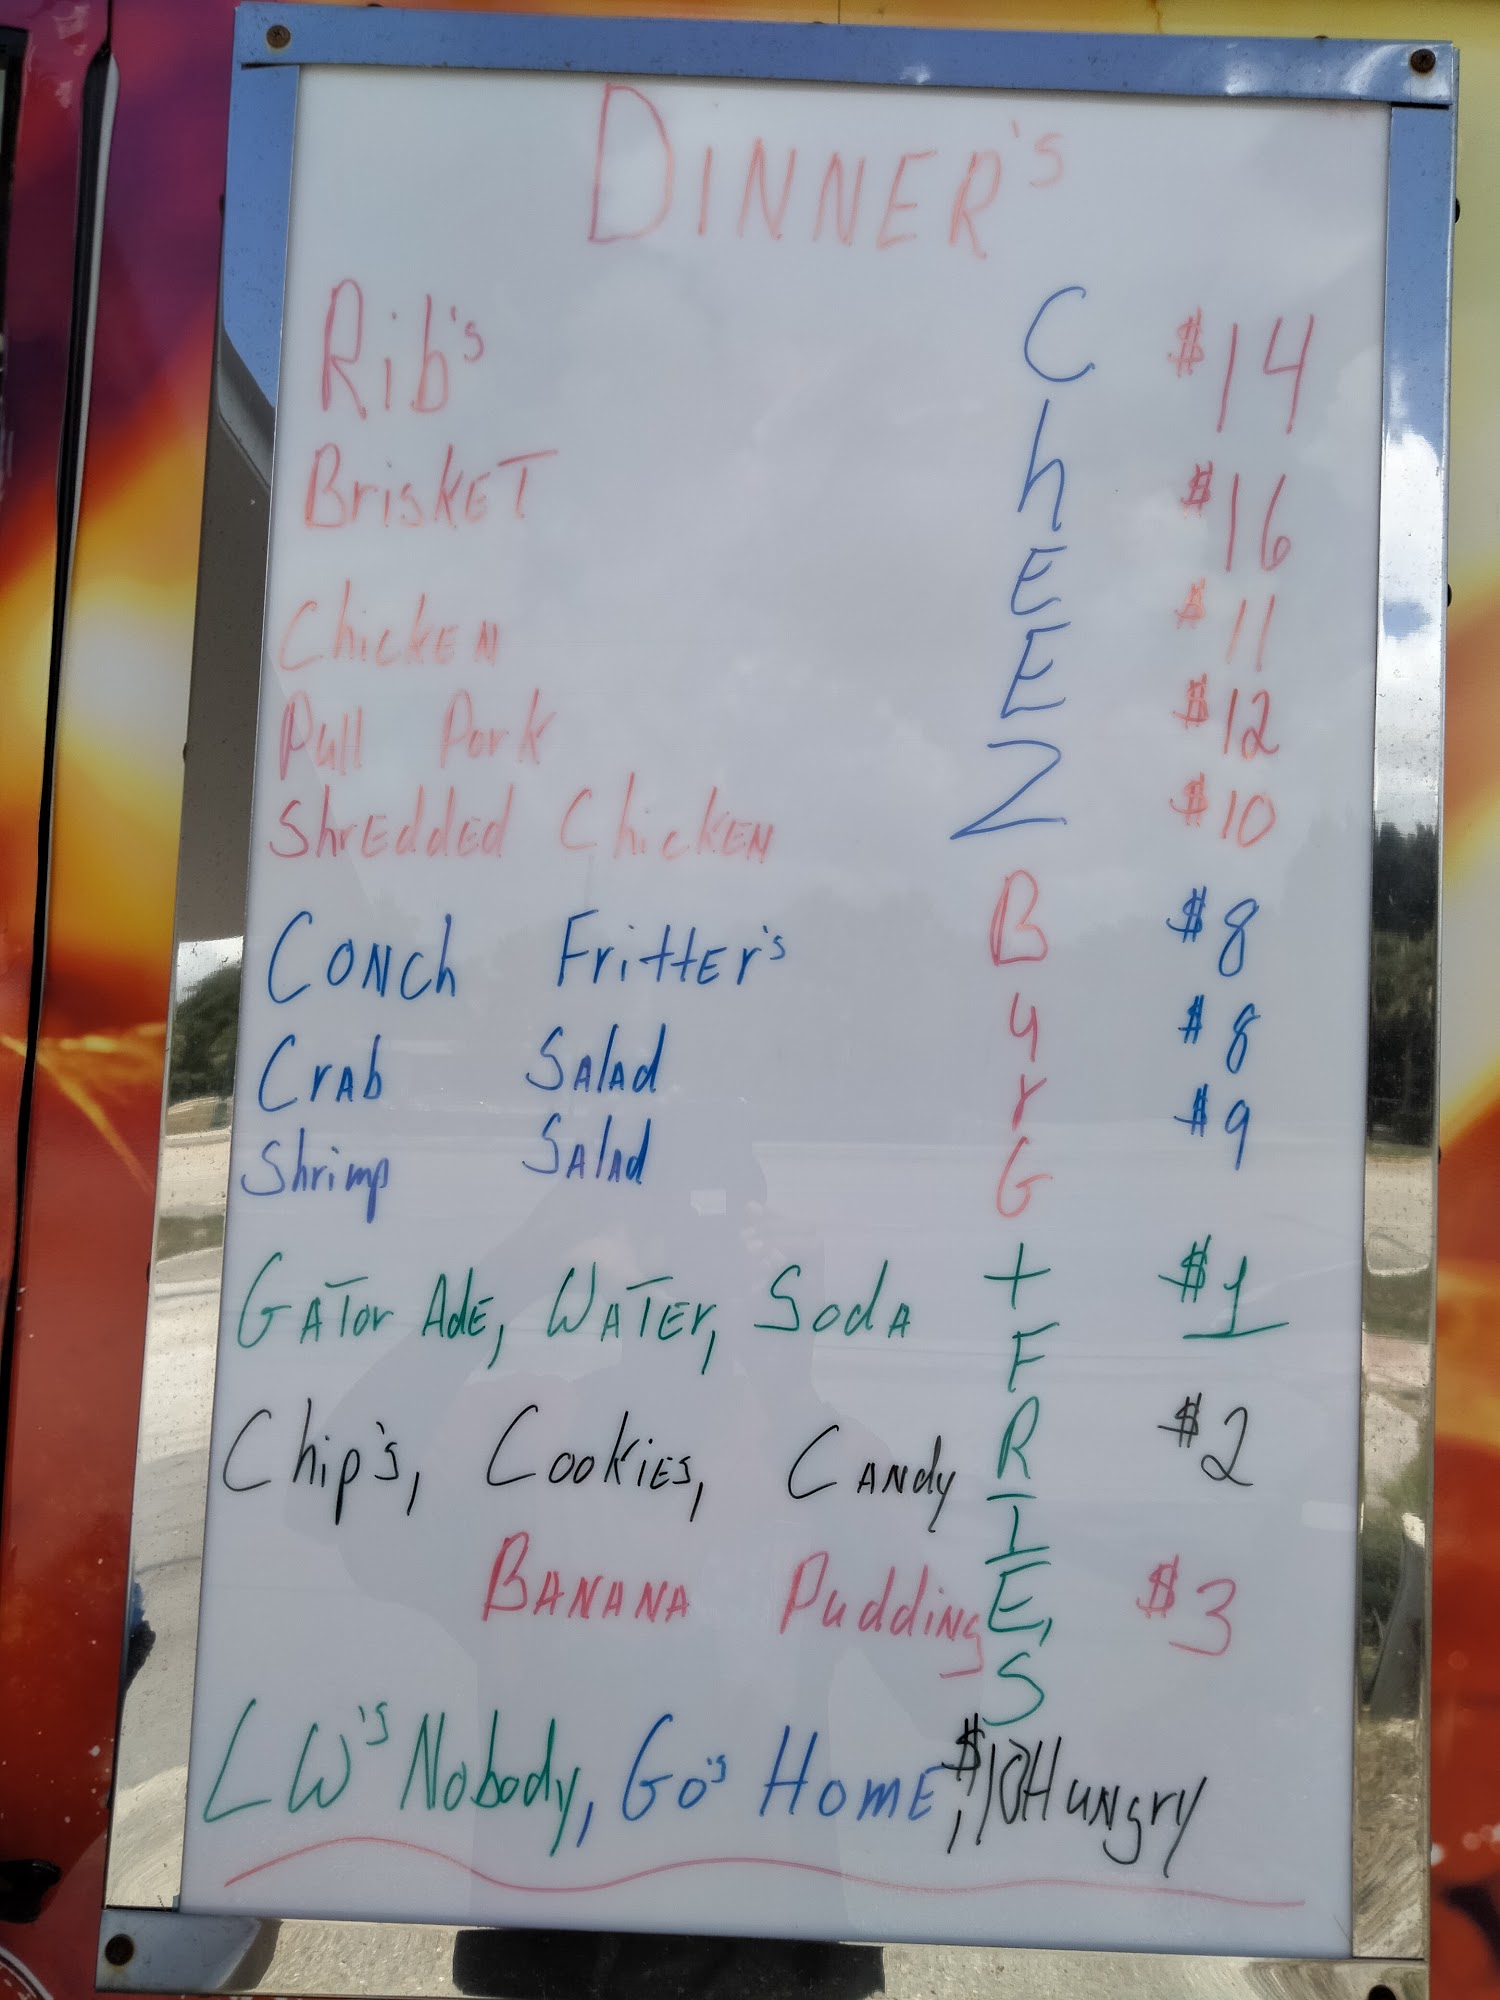 DINNER's
Rib's $14
BriskET $16
ChickEN $11
Pull Pork $12
ShrEddEd ChickEN $10
CONCh FrittEr's $8
CrAb SAlAd $8
Shrimp SAlAd $9
GATor AdE, WATEr, SodA $1
Chip's, CookiEs, CANdy $2
BANANA Pudding $3
ChEEZ BurG + FRIE,S
$10
LW's Nobody, Go's HomE, HuNgry